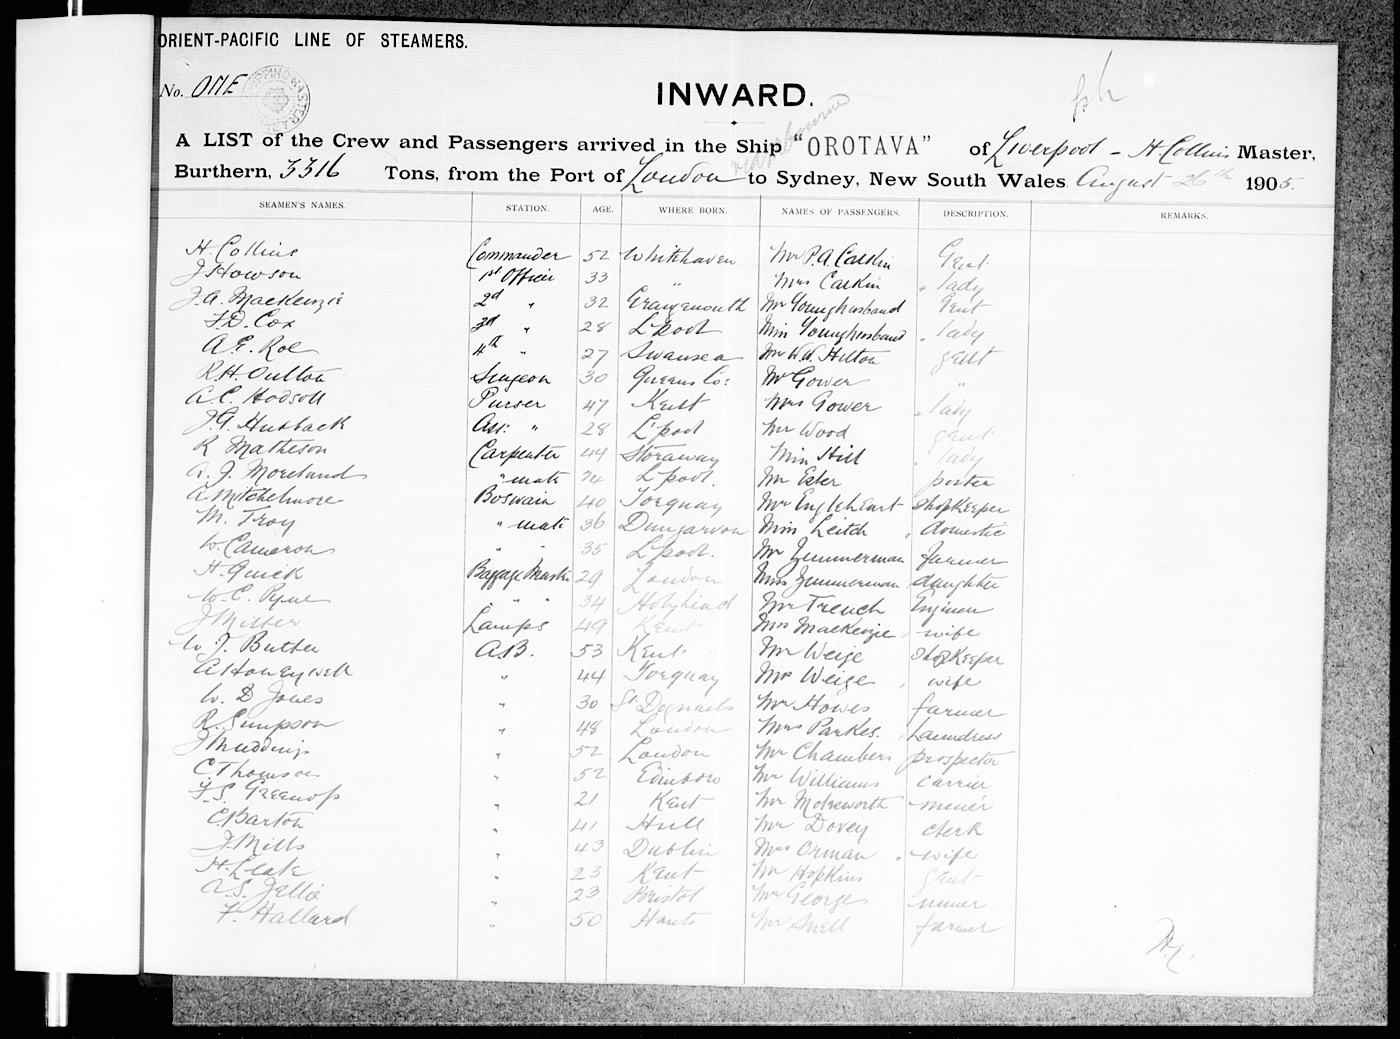 ORIENT-PACIFIC LINE OF STEAMERS.
No. ONE
INWARD.
A LIST of the Crew and Passengers arrived in the Ship "OROTAVA" of Liverpool - H. Collins Master,
Burthern, 3316 Tons, from the Port of London to Sydney, New South Wales August 26th 1905.
SEAMEN'S NAMES. STATION. AGE. WHERE BORN. NAMES OF PASSENGERS. DESCRIPTION. REMARKS.
H. Collins Commander 52 Whitehaven Mr P.A. Calkin Gent
J Howson 1st Officer 33 " Mrs Calkin lady
J.A. Mackenzie 2d " 32 Mr Younghusband Gent
F.D. Cox 3rd " 28 L'pool Miss Younghusband lady
A.E. Roe 4th " 27 Swansea Mr W.A. Hilton gent
R.H. Oulton Surgeon 30 Queens Co: Mr Gower "
A.C. Hodsoll Purser 47 Kent Mrs Gower lady
J.G. Husback Ass: " 28 L'pool Mr Wood gent
R Matheson Carpenter 44 Storaway Miss Hill lady
A. J. Moreland " mate 24 L'pool. Mr Ester porter
A Mitchelmore Boswain 40 Torquay Mr Engleheart Shopkeeper
M. Troy " mate 36 Dungarvon Miss Leitch domestic
W. Cameron " " 35 L'pool. Mr Zimmerman farmer
H. Quick Baggage Master 29 London Miss Zimmerman daughter
W. C. Pyne " " 34 Holyhead Mr Trench Engineer
J Miller Lamps 49 Kent Mrs Mackenzie wife
W. J. Butler A.B. 53 Kent Mr Weige Shopkeeper
A Honeywell " 44 Torquay Mrs Weige wife
W. D Jones " 30 St Mr Howes farmer
R. Simpson " 48 London Mrs Parkes. Laundress
J Muddings " 52 London Mr Chambers prospector
C. Thomson " 52 Edinboro Mr Williams carrier
F.S. Greenop " 21 Kent Mr Molesworth miner
C. Barton " 41 Hull Mr Dovey clerk
J. Mills " 43 Dublin Mrs Orman wife
H. Leak " 23 Kent Mr Hopkins gent
A S. Jellie " 23 Bristol Mr George miner
F Hallard " 50 Hants Mr Snell farmer